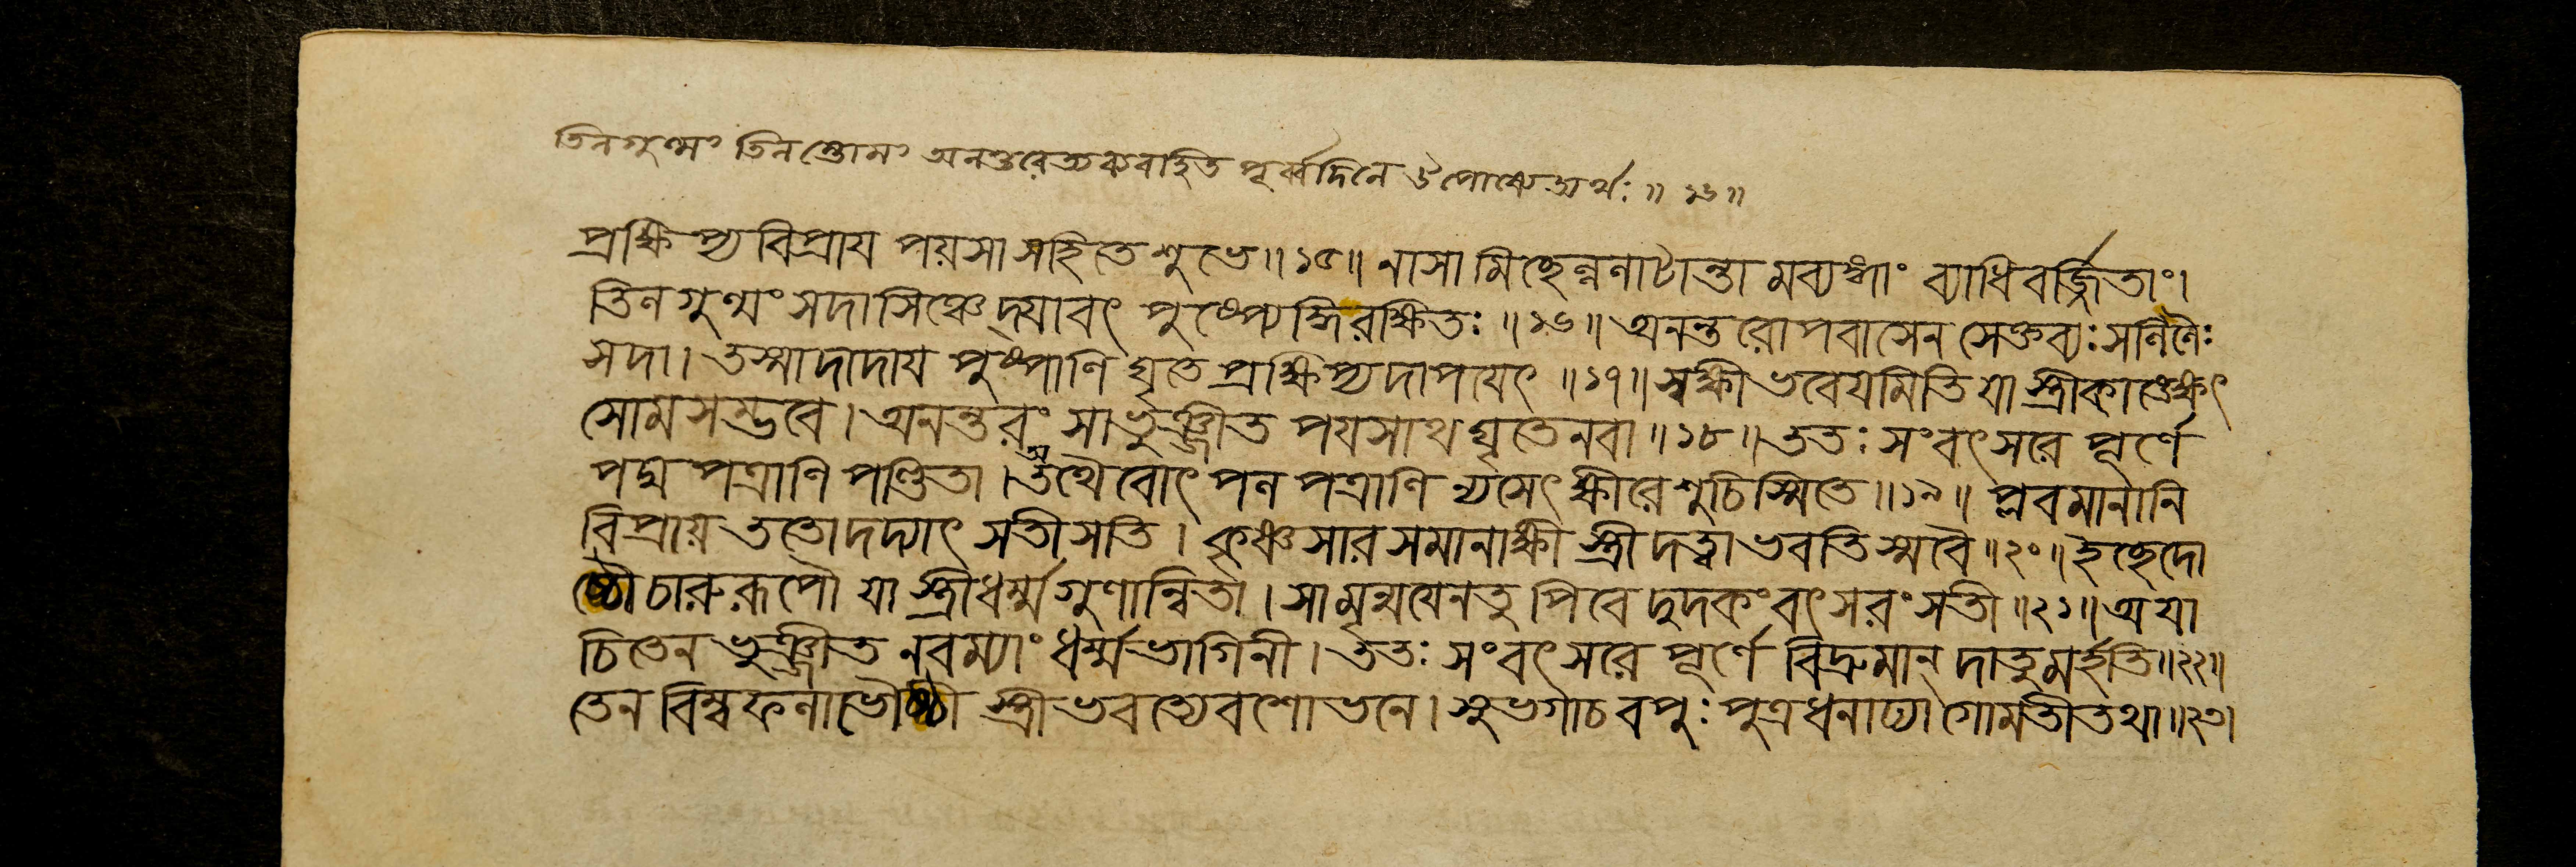 তিলগুল্মং তিলস্তোমং অনন্তরেত্যব্যবহিত পূর্ব্বদিনে উপোষ্যেত্যর্থঃ ॥ ১৬ ॥
প্রক্ষিপ্য বিপ্রায় পয়সা সহিতে শুভে ॥ ১৫ ॥ নাসামিচ্ছেন্ননাটান্তামব্যঙ্গাং ব্যাধিবর্জ্জিতাং ।
তিলগুল্মং সদাসিঞ্চেদ্যাবৎ পুষ্প্যেদ্ধিরক্ষিতঃ ॥ ১৬ ॥ অনন্তরোপবাসেন সেক্তব্যঃ সলিলৈঃ
সদা । তস্মাদাদায় পুষ্পাণি ঘৃতে প্রক্ষিপ্য দাপয়েৎ ॥ ১৭ ॥ স্বক্ষী ভবেয়মিতি যা স্ত্রীকাঙ্ক্ষেৎ
সোমসম্ভবে । অনন্তরং সাভুঞ্জীত পয়সাথ ঘৃতেনবা ॥ ১৮ ॥ ততঃ সংবৎসরে পূর্ণে
পদ্মপত্রাণি পণ্ডিতা । তথৈবোৎপলপত্রাণি ন্যসেৎ ক্ষীরে শুচিস্মিতে ॥ ১৯ ॥ প্লবমানানি
বিপ্রায় ততোদদ্যাৎ সতীসতি । কৃষ্ণসারসমানাক্ষী স্ত্রী দত্ত্বা ভবতিস্মবৈ ॥ ২০ ॥ ইচ্ছেদো
ষ্ঠৌ চারুরূপৌ যা স্ত্রীধর্ম্মগুণান্বিতা । সামৃন্ময়েনতু পিবেদুদকং বৎসরং সতী ॥ ২১ ॥ অযা
চিতেন ভুঞ্জীত নবম্যাং ধর্ম্মভাগিনী । ততঃ সংবৎসরে পূর্ণে বিদ্রুমান্ দাতুমর্হতি ॥ ২২ ॥
তেন বিম্বফলাভৌষ্ঠী স্ত্রী ভবত্যেবশোভনে । সুভগাচবপুঃ পুত্রধনাঢ্যা গোমতীতথা ॥ ২৩ ।